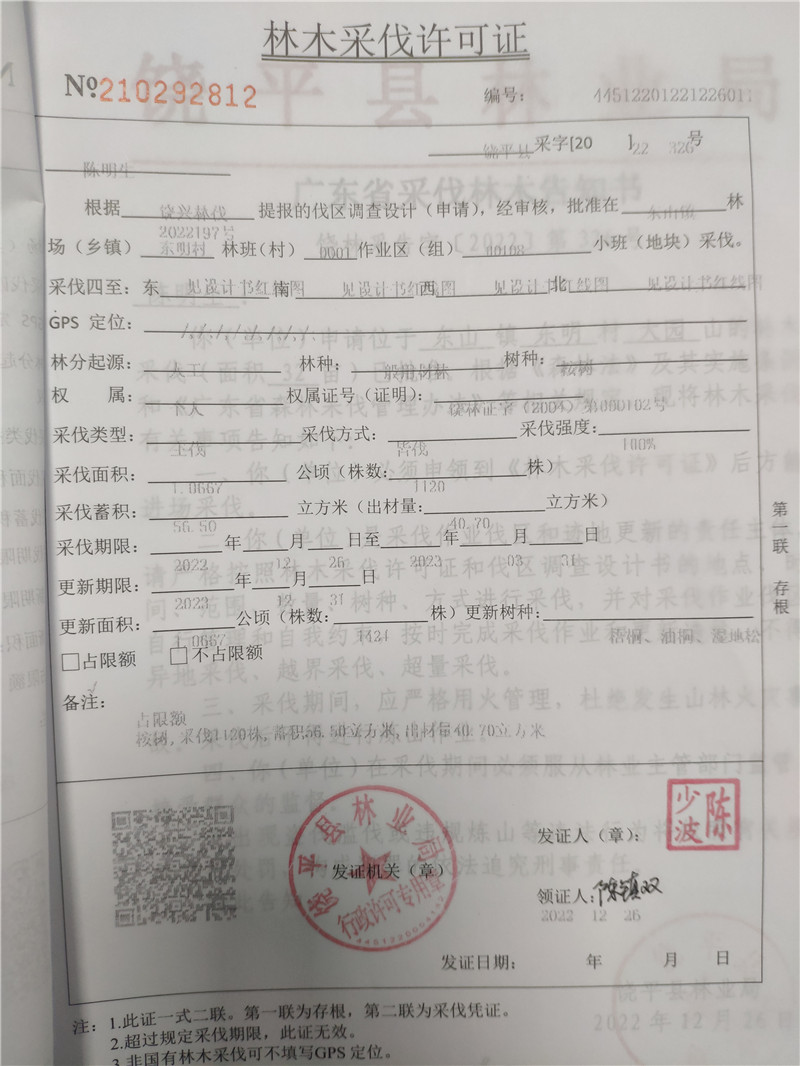 林木采伐许可证
№210292812
编号: 445122012212260
饶平县 采字[20 22 ] 326 号
陈明生
根据 饶兴林伐 提报的伐区调查设计（申请），经审核，批准在 东山镇 林
2022197号
场（乡镇） 东明村 林班(村） 0001 作业区（组） 00108 小班（地块）采伐。
采伐四至: 东 见设计书红线图 南 见设计书红线图 西 见设计书红线图 北 见设计书红线图
GPS 定位:
林分起源: 人工 林种: 一般用材林 树种: 桉树
权 属: 个人 权属证号（证明）: 饶林证字（2004）第000102号
采伐类型: 主伐 采伐方式: 皆伐 采伐强度: 100%
采伐面积: 1.0667 公顷（株数: 1120 株）
采伐蓄积: 56.50 立方米（出材量: 40.70 立方米）
采伐期限: 2022 年 12 月 26 日至 2023 年 03 月 31 日
更新期限: 2023 年 12 月 31 日
更新面积: 1.0667 公顷（株数: 1424 株）更新树种: 梧桐、油桐、湿地松
□占限额 □不占限额
备注:
占限额
桉树,采伐1120株,蓄积56.50立方米,出材量40.70立方米
第一联 存根
饶平县林业局
行政许可专用章
发证机关（章）
发证人（章）:
陈少波
领证人: 陈镇双
2022 12 26
发证日期: 年 月 日
注: 1.此证一式二联。第一联为存根，第二联为采伐凭证。
2.超过规定采伐期限，此证无效。
3.非国有林木采伐可不填写GPS 定位。